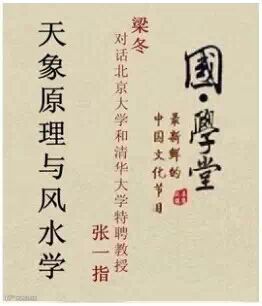 國·學堂
最新鲜的
中国文化节目
梁冬
对话北京大学和清华大学特聘教授
张一指
天象原理与风水学